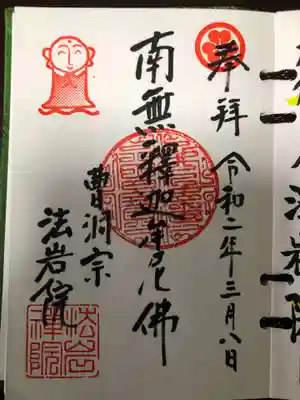 奉拝 令和二年三月八日
南無釋迦牟尼佛
曹洞宗
法岩院
法岩
禅院